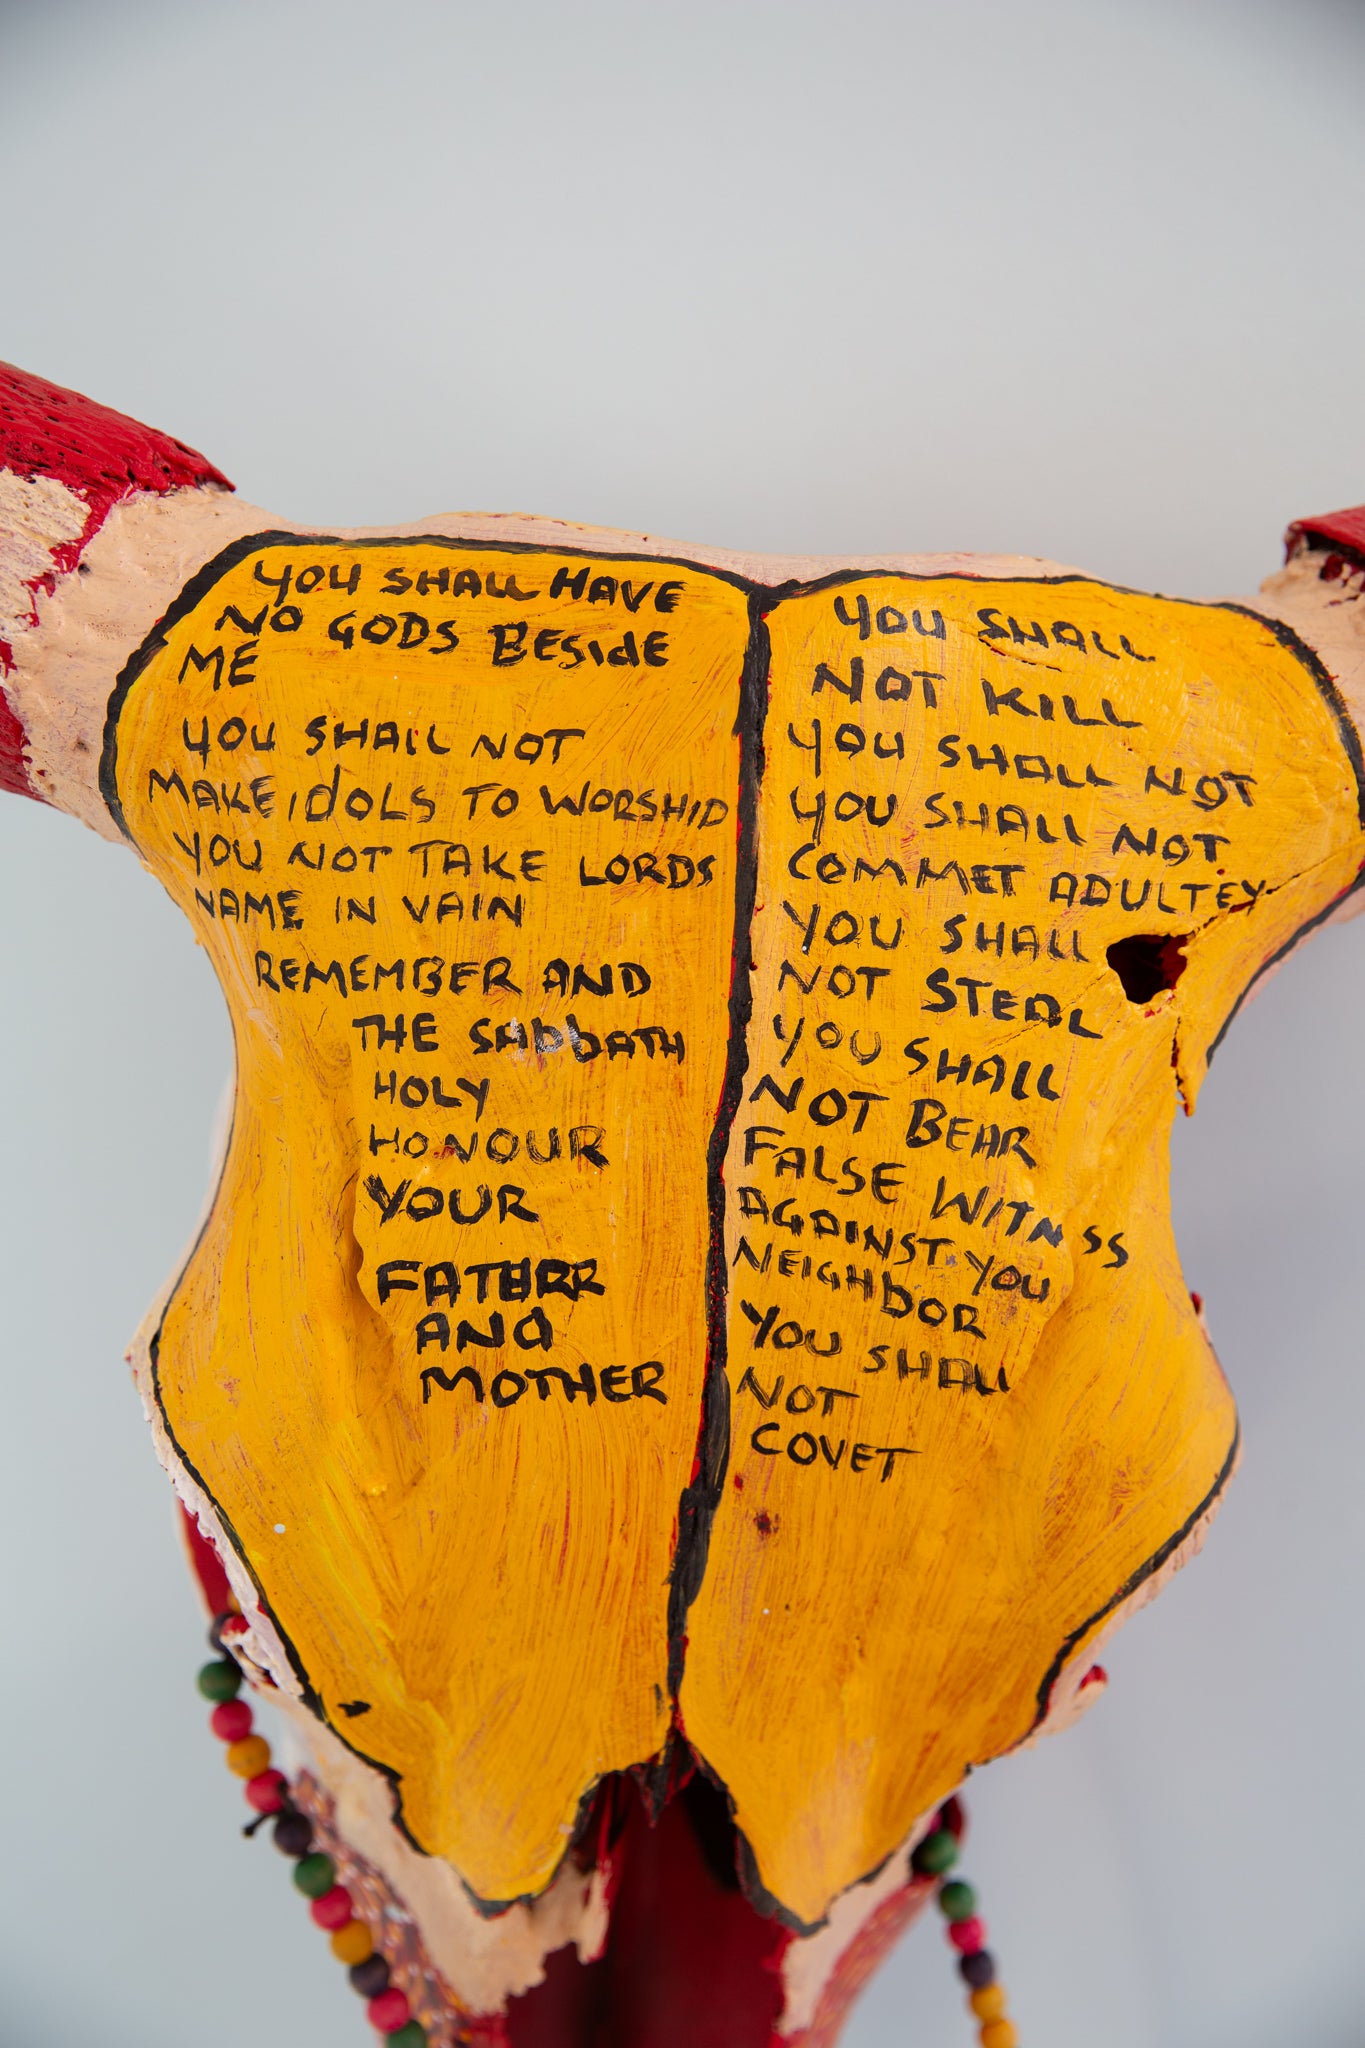 YOU SHALL HAVE
NO GODS BESIDE
ME
YOU SHALL NOT
MAKE IDOLS TO WORSHIP
YOU NOT TAKE LORDS
NAME IN VAIN
REMEMBER AND
THE SABBATH
HOLY
HONOUR
YOUR
FATERR
AND
MOTHER
YOU SHALL
NOT KILL
YOU SHALL NOT
YOU SHALL NOT
COMMET ADULTEY
YOU SHALL
NOT STEAL
YOU SHALL
NOT BEAR
FALSE WITNSS
AGAINST YOU
NEIGHBOR
YOU SHALL
NOT
COVET